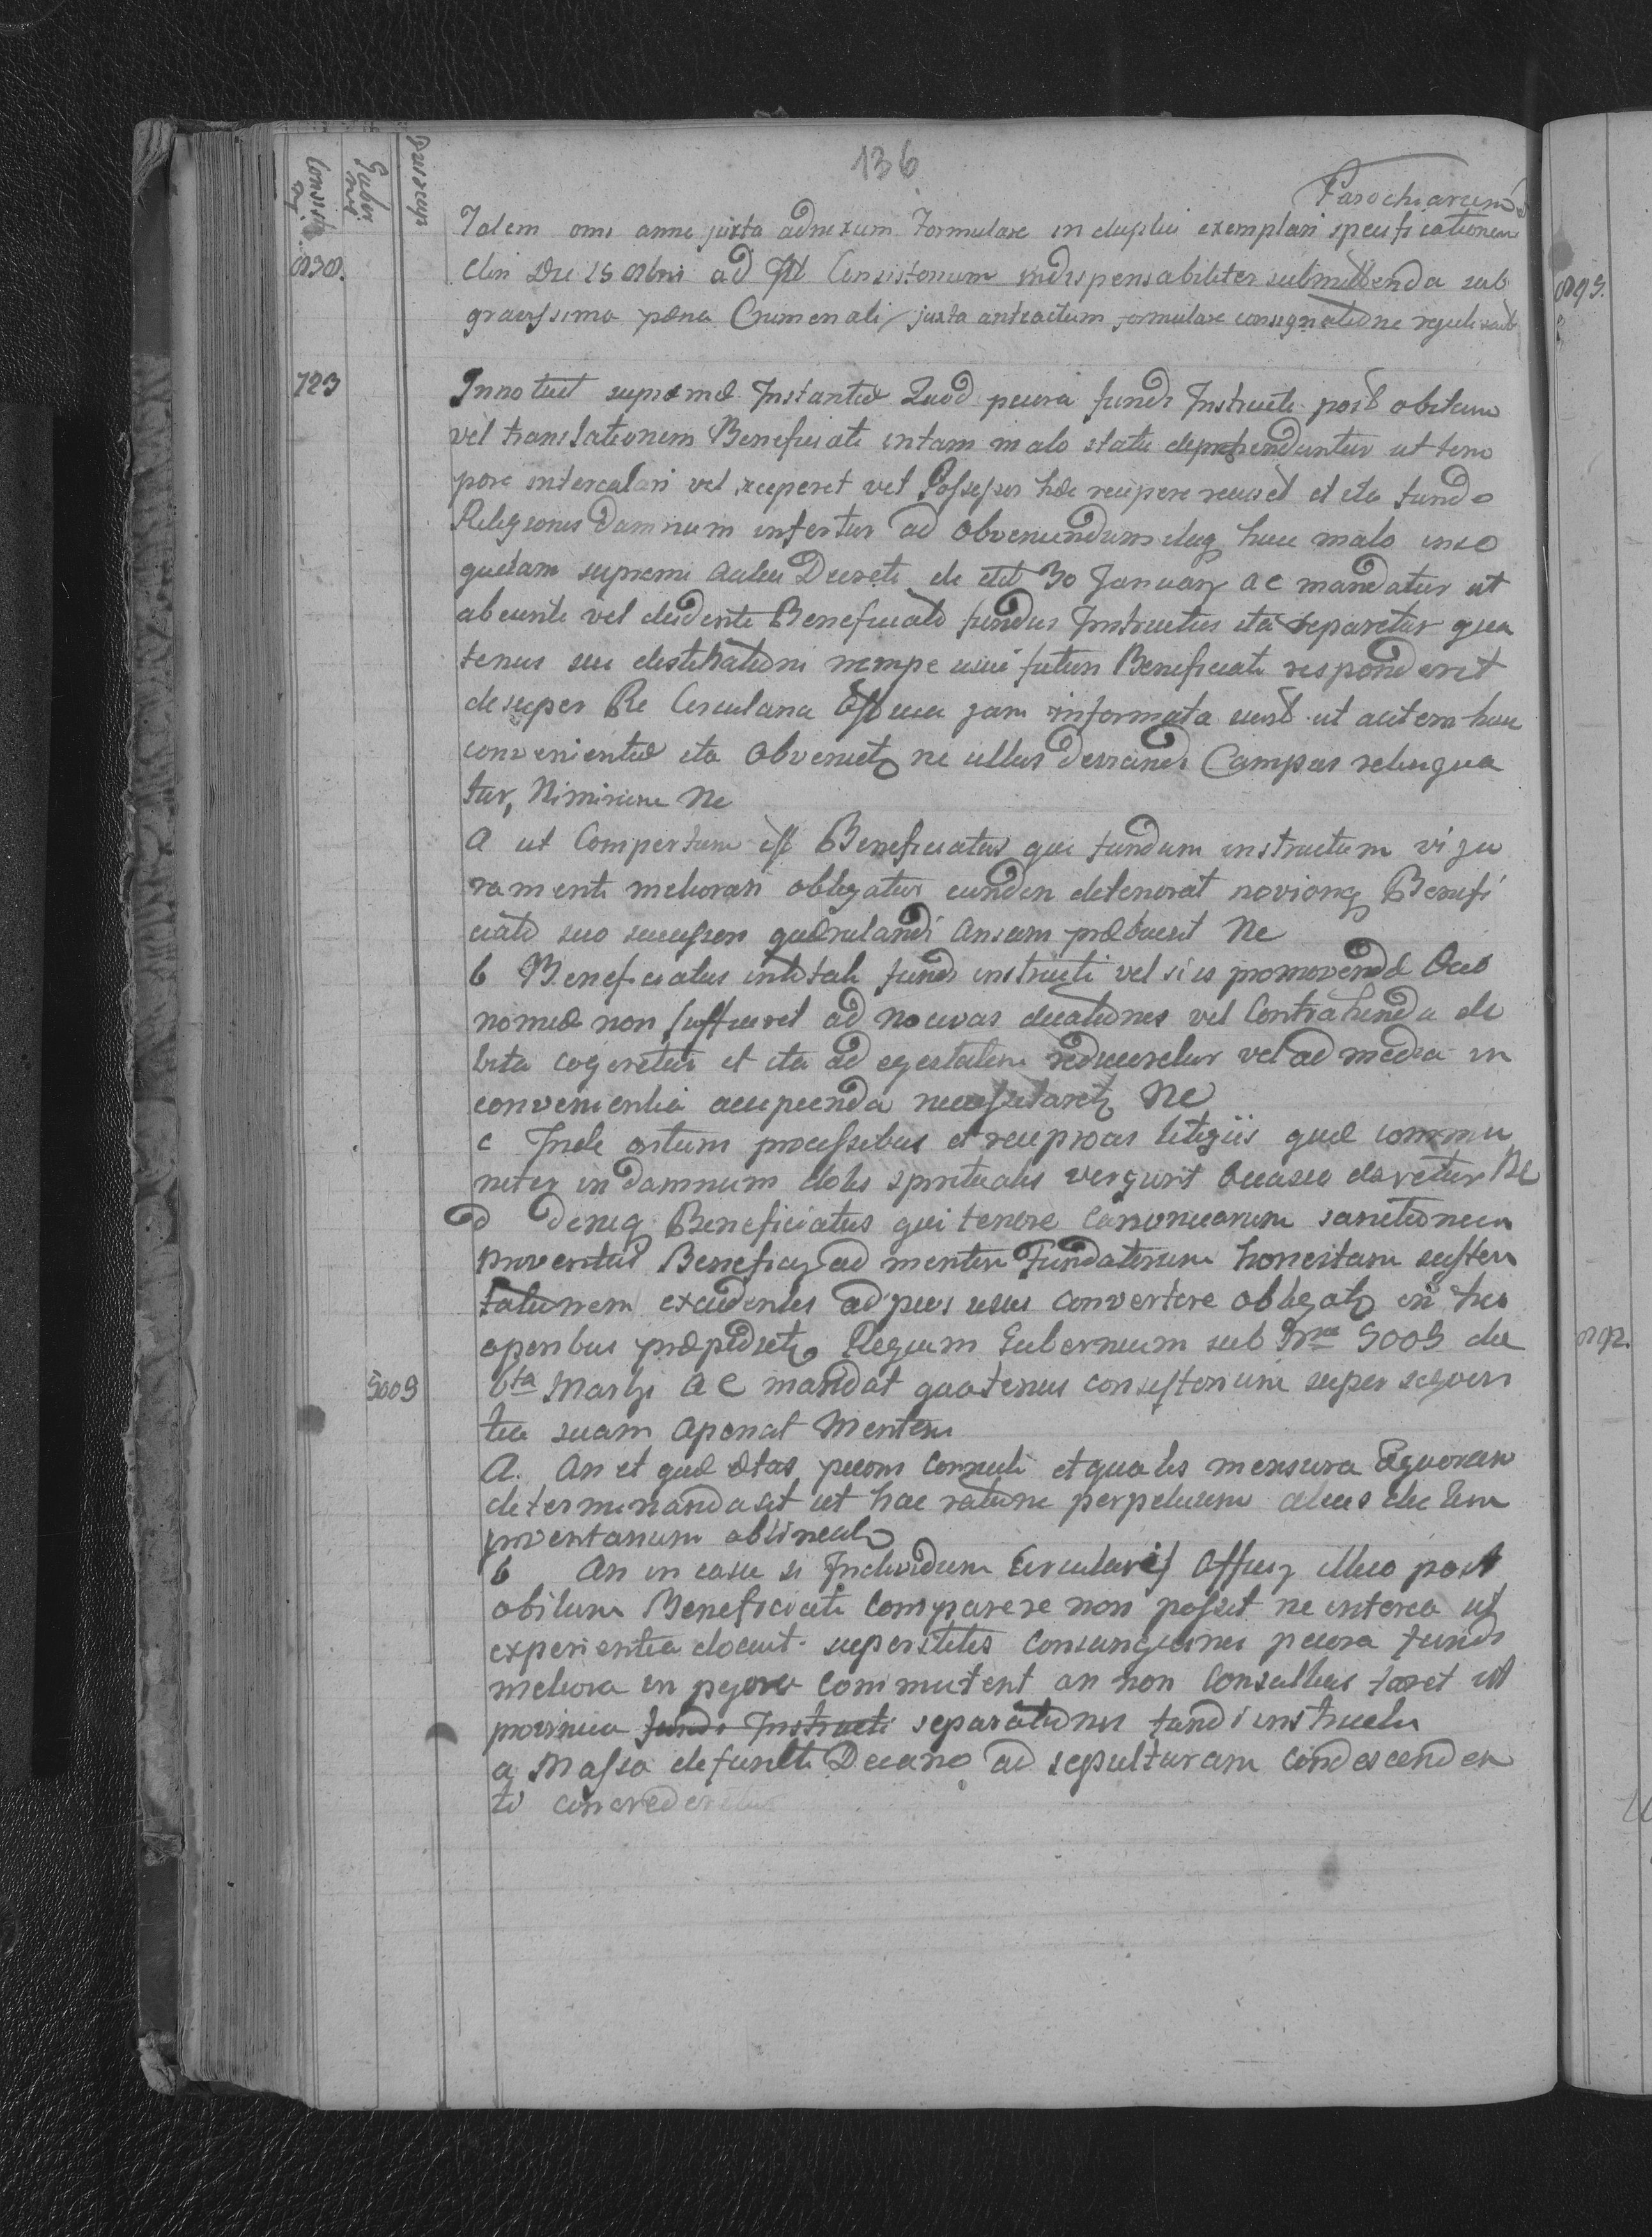 136
Parochiarum
Talem omi anno juxta adnexum Formulare in duplici exemplari specificationem
Die 15 ad Consistorium indispensabiliter submittenda sub
gravissima pæna Crumenali juxta antactum formulare consignatione
723
Innotuit supremæ Instantiæ Quod pecora fundi Instructi post obitum
vel translationem Beneficiati in tam malo statu deprehenduntur ut tem
pore intercalari vel Possessor hæc recipere et ita fundo
Religionis Damnum infertur ad obveniendum itaq huic malo inse
quelam supremi Aulici Decreti de dto 30 January a c mandatur ut
abeunte vel decedente Beneficiato fundus Instructus ita separetur qua
tenus suæ destinationi nempe usui futuri Beneficiati responderet
desuper Re Circularia Officia jam informata sunt ut autem huic
convenientiæ ita obveniet ne ullus Campus relinqua
tur, Nimirum Ne
a ut Compertum est Beneficiatus qui fundum instructum vi ju
ramenti meliorari obligatur eundem deteriorat noviorq Benefi
ciato suo successori quærulandi Ansam præbuerit Ne
b Beneficiatus fundi instructi vel si is promovendæ Oeco
nomiæ non sufficeret ad novas vel Contrahenda de
bita cogeretur et ita ad egestatem reduceretur vel ad media in
convenientia accipienda necessitaret Ne
c Inde ortum processibus et reciprocis litigiis quæ commu
niter in damnum dotis spiritualis vergunt occasio daretur Ne
d deniq Beneficiatus qui tenore Canonicarum sanctionum
proventus Beneficij ad mentem Fundatorum honestam susten
tationem excedentes ad pios usus convertere obligat in his
operibus præpediret Regium Gubernium sub Nro 5009 de
5009
6ta Martji a c mandat quatenus consistorium super sequen
tia suam aponat Mentem
A. An et quæ ætas pecori Cornuti et qualis mensura
determinanda sit ut hac ratione perpetuum
proventarium obtineat
b An in casu si Individuum Circularis Officij illico post
obitum Beneficiati Comparere non posset ne interea ut
experientia docuit superstites Consanguinei pecora fundi
meliora in pejora Commutent an non Consultius foret ut
provincia fundi Instructi separationis fundi instructi
a Massa defuncti Decano ad sepulturam Condescenden
ti concrederetur